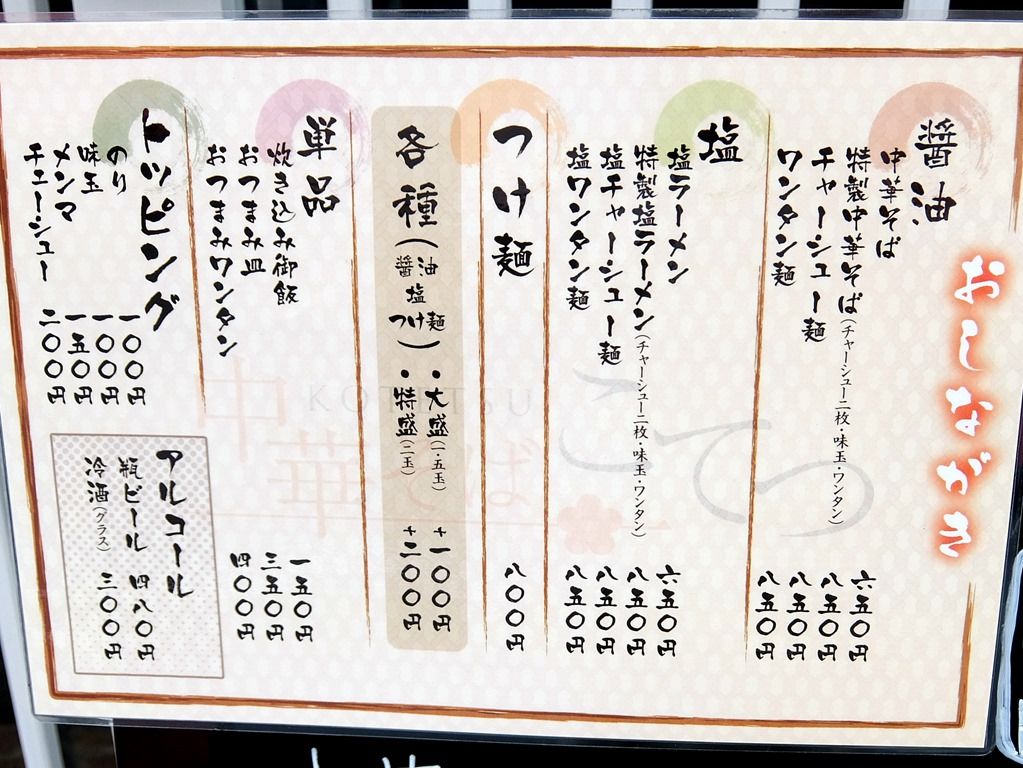 おしながき
醤油
中華そば 六五〇円
特製中華そば(チャーシュー二枚・味玉・ワンタン) 八五〇円
チャーシュー麺 八五〇円
ワンタン麺 八五〇円
塩
塩ラーメン 六五〇円
特製塩ラーメン(チャーシュー二枚・味玉・ワンタン) 八五〇円
塩チャーシュー麺 八五〇円
塩ワンタン麺 八五〇円
つけ麺 八〇〇円
各種(醤油 塩 つけ麺)
・大盛(一・五玉) +一〇〇円
・特盛(二玉) +二〇〇円
単品
炊き込み御飯 一五〇円
おつまみ皿 三五〇円
おつまみワンタン 四〇〇円
トッピング
のり 一〇〇円
味玉 一〇〇円
メンマ 一五〇円
チャーシュー 二〇〇円
アルコール
瓶ビール 四八〇円
冷酒(グラス) 三〇〇円
KOTETSU
中華そば
こてつ